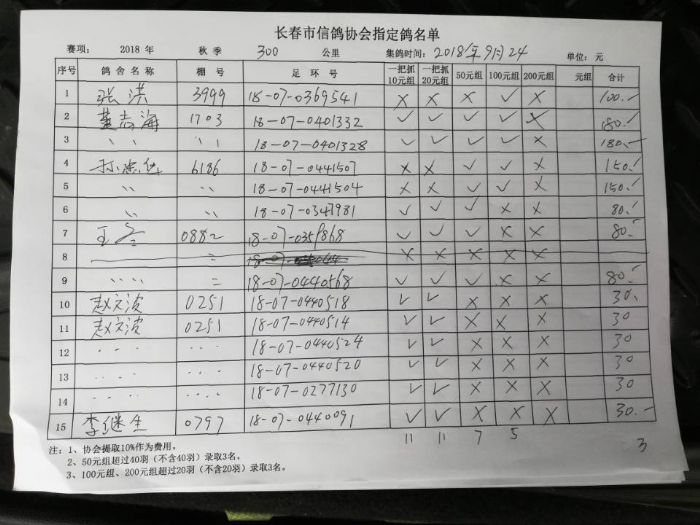 长春市信鸽协会指定鸽名单
赛项： 2018 年 秋 季 300 公里 集鸽时间：2018年9月24 单位：元
序号 鸽舍名称 棚号 足环号 一把抓10元组 一把抓20元组 50元组 100元组 200元组 元组 合计
1 张洪 3999 18-07-0369541 × × × ✓ × 100.-
2 董志海 1703 18-07-0401332 ✓ ✓ ✓ ✓ × 180.-
3 〃 〃 18-07-0401328 ✓ ✓ ✓ ✓ × 180.-
4 孙 6186 18-07-0441507 × × ✓ ✓ × 150.-
5 〃 〃 18-07-0441504 × × ✓ ✓ × 150.-
6 〃 〃 18-07-0347981 ✓ ✓ ✓ × × 80.-
7 王 0882 18-07-0359868 ✓ ✓ ✓ × × 80.-
8 〃 18-07- × × × × ×
9 〃 〃 〃 18-07-0440568 ✓ ✓ ✓ × × 80.-
10 赵文波 0251 18-07-0440518 ✓ ✓ × × × 30.
11 赵文波 0251 18-07-0440514 ✓ ✓ × × × 30
12 〃 〃 〃 18-07-0440524 ✓ ✓ × × × 30
13 〃 〃 〃 18-07-0440520 ✓ ✓ × × × 30
14 〃 〃 〃 18-07-0277130 ✓ ✓ × × × 30
15 李继生 0797 18-07-0440091 ✓ ✓ × × × 30.-
11 11 7 5
3
注：1、协会提取10%作为费用。
2、50元组超过40羽（不含40羽）录取3名。
3、100元组、200元组超过20羽（不含20羽）录取3名。